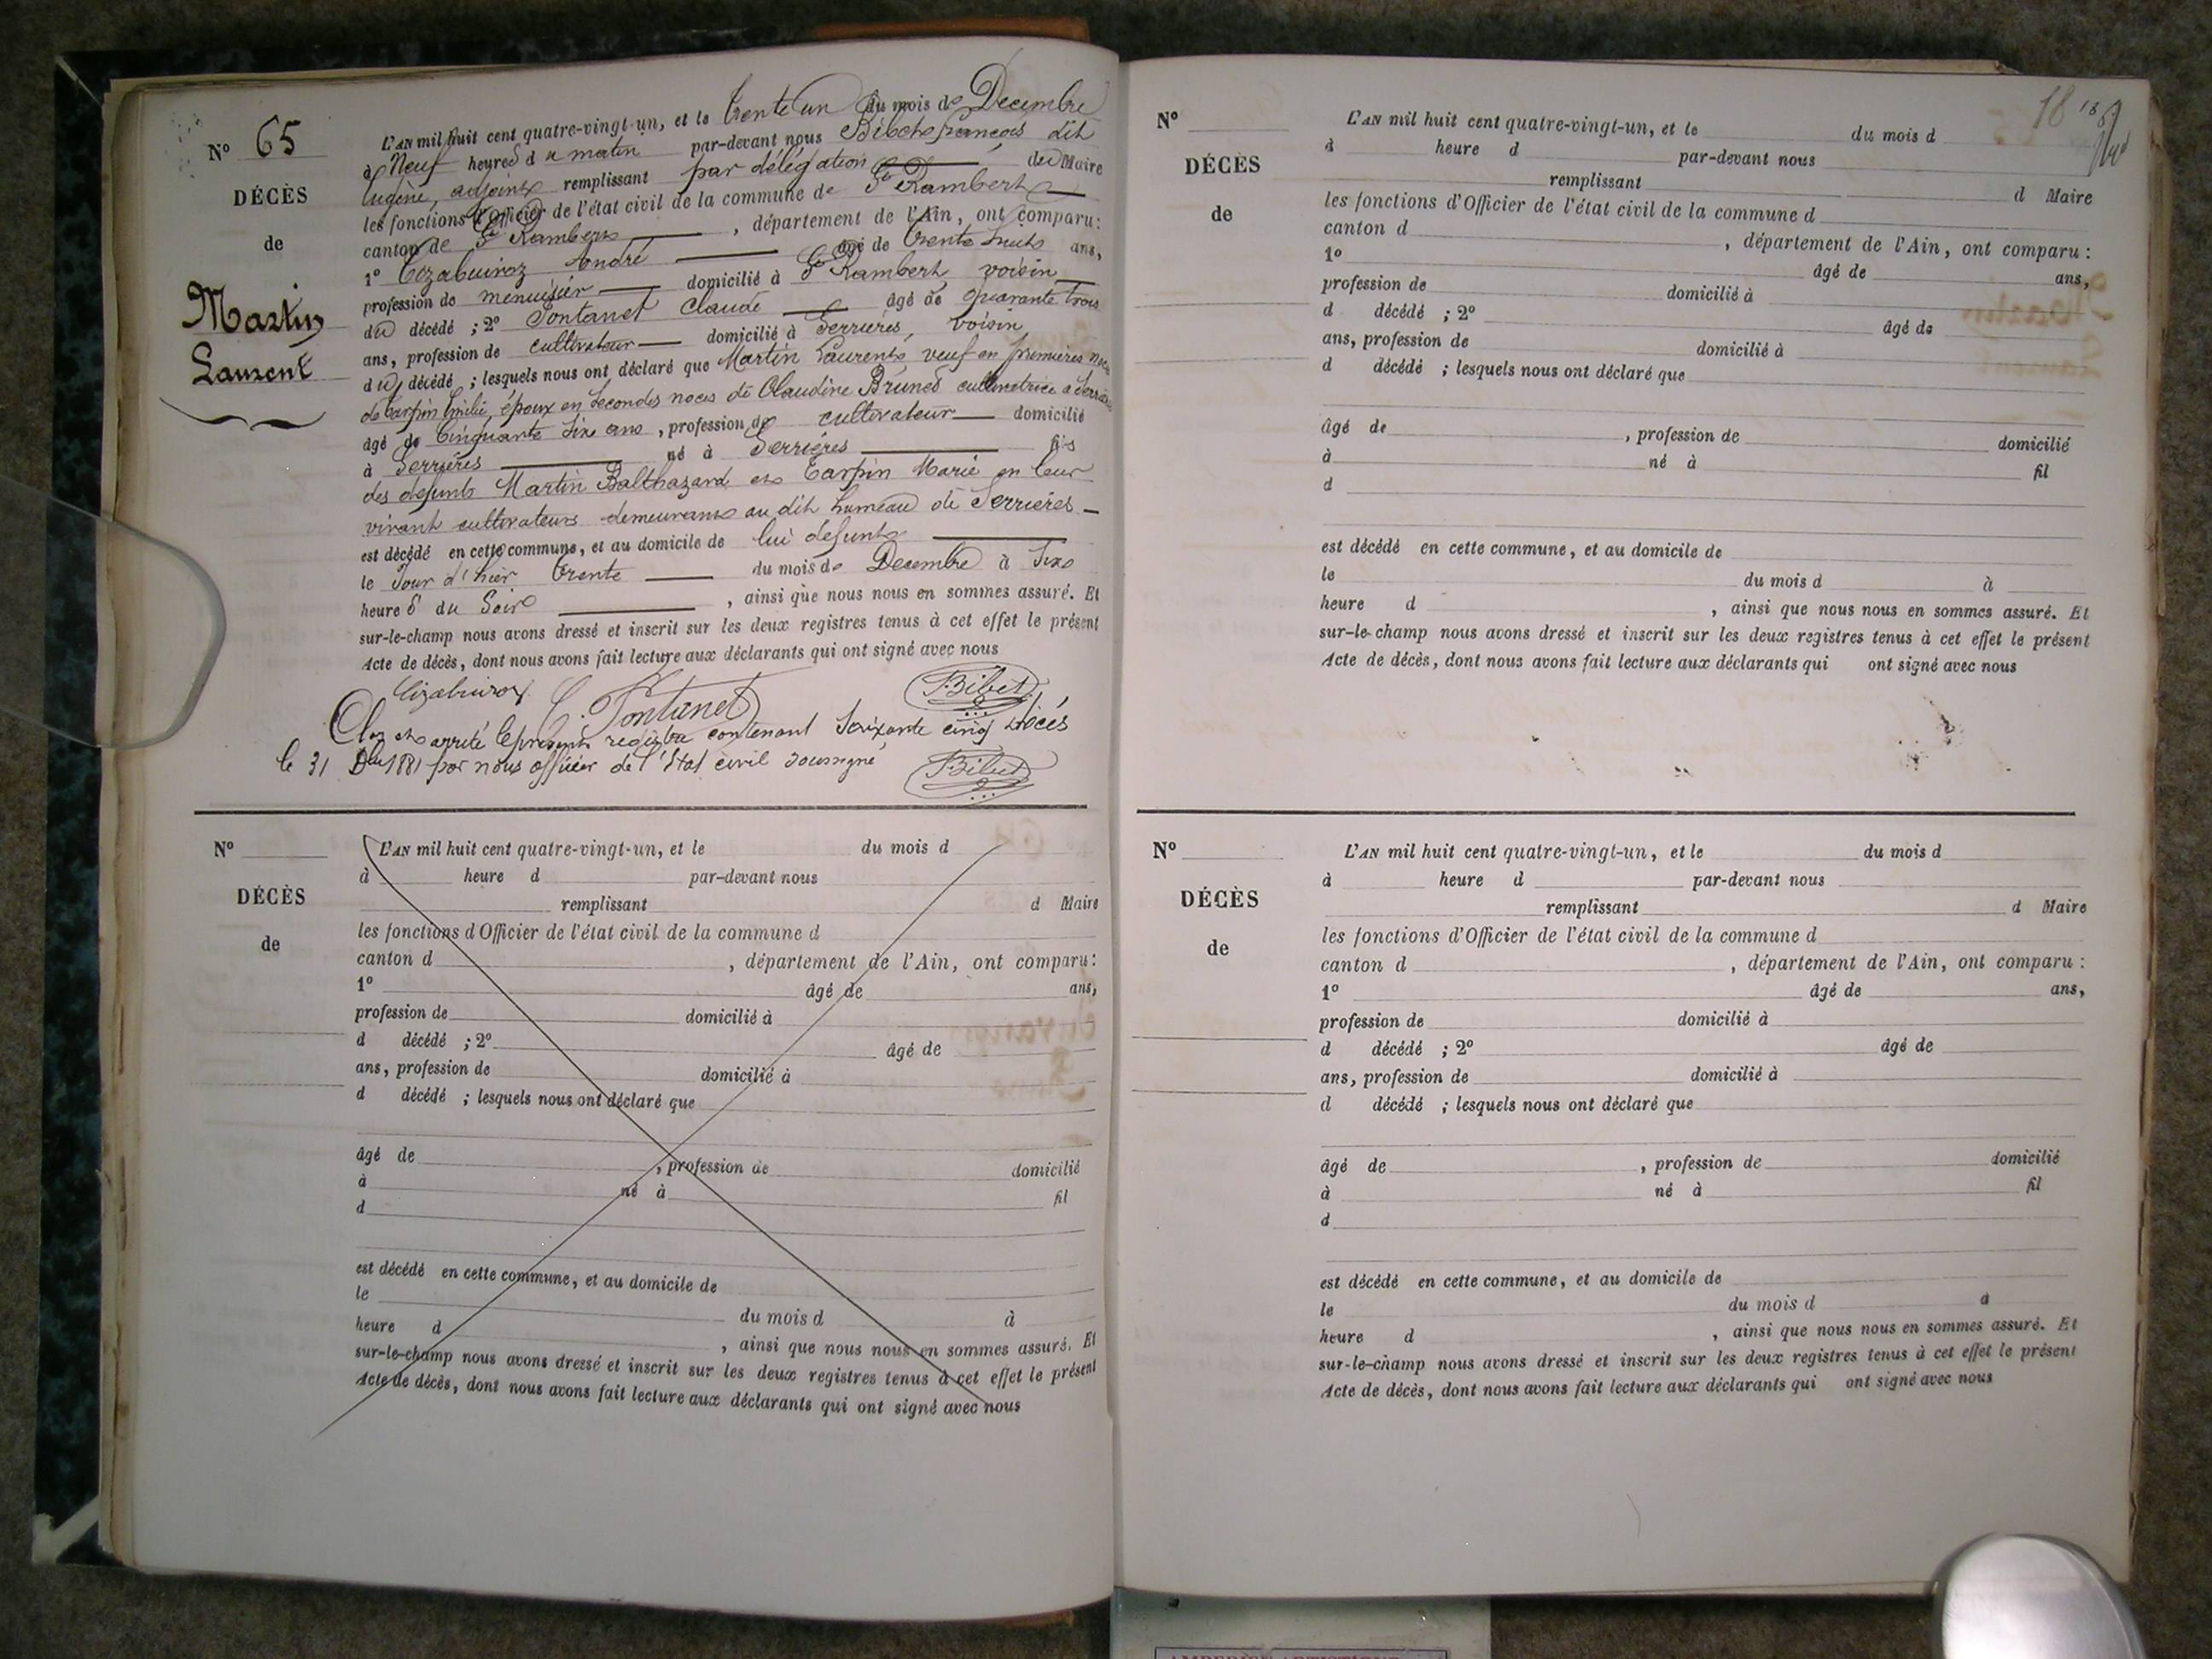 N° 65
DÉCÈS
de
Martin
Laurent
L'AN mil huit cent quatre-vingt-un, et le trente un du mois de Decembre
à Neuf heures du matin par-devant nous Bibet francois dit
Eugène, adjoint remplissant par délégation du Maire
les fonctions d'Officier de l'état civil de la commune de St Rambert
canton de St Rambert, département de l'Ain, ont comparu:
1° André âgé de trente huit ans,
profession de menuisier domicilié à St Rambert, voisin
du décédé ; 2° Fontanet Claude âgé de quarante trois
ans, profession de cultivateur domicilié à Serrières, voisin
du décédé ; lesquels nous ont déclaré que Martin Laurent, veuf en premières noces
de Carpin Emilie, époux en secondes noces de Claudine Brunet cultivatrice à Serrières
âgé de Cinquante six ans, profession de cultivateur domicilié
à Serrières né à Serrières fils
des defunts Martin Balthazard et Carpin Marie en leur
vivant cultivateurs demeurant au dit hameau de Serrières
est décédé en cette commune, et au domicile de lui defunt
le Jour d'hier trente du mois de Decembre à Six
heures du Soir, ainsi que nous nous en sommes assuré. Et
sur-le-champ nous avons dressé et inscrit sur les deux registres tenus à cet effet le présent
Acte de décès, dont nous avons fait lecture aux déclarants qui ont signé avec nous
C. Fontanet Bibet
Clos et arrêté le présent registre contenant Soixante cinq décès
le 31 Dbre 1881 par nous officier de l'état civil soussigné
Bibet
N°
DÉCÈS
de
L'AN mil huit cent quatre-vingt-un, et le du mois d
à heure d par-devant nous
remplissant d Maire
les fonctions d'Officier de l'état civil de la commune d
canton d , département de l'Ain, ont comparu:
1° âgé de ans,
profession de domicilié à
d décédé ; 2° âgé de
ans, profession de domicilié à
d décédé ; lesquels nous ont déclaré que
âgé de , profession de domicilié
à né à fil
d
est décédé en cette commune, et au domicile de
le du mois d à
heure d , ainsi que nous nous en sommes assuré. Et
sur-le-champ nous avons dressé et inscrit sur les deux registres tenus à cet effet le présent
Acte de décès, dont nous avons fait lecture aux déclarants qui ont signé avec nous
18
N°
DÉCÈS
de
L'AN mil huit cent quatre-vingt-un, et le du mois d
à heure d par-devant nous
remplissant d Maire
les fonctions d'Officier de l'état civil de la commune d
canton d , département de l'Ain, ont comparu :
1° âgé de ans,
profession de domicilié à
d décédé ; 2° âgé de
ans, profession de domicilié à
d décédé ; lesquels nous ont déclaré que
âgé de , profession de domicilié
à né à fil
d
est décédé en cette commune, et au domicile de
le du mois d à
heure d , ainsi que nous nous en sommes assuré. Et
sur-le-champ nous avons dressé et inscrit sur les deux registres tenus à cet effet le présent
Acte de décès, dont nous avons fait lecture aux déclarants qui ont signé avec nous
N°
DÉCÈS
de
L'AN mil huit cent quatre-vingt-un, et le du mois d
à heure d par-devant nous
remplissant d Maire
les fonctions d'Officier de l'état civil de la commune d
canton d , département de l'Ain, ont comparu :
1° âgé de ans,
profession de domicilié à
d décédé ; 2° âgé de
ans, profession de domicilié à
d décédé ; lesquels nous ont déclaré que
âgé de , profession de domicilié
à né à fil
d
est décédé en cette commune, et au domicile de
le du mois d à
heure d , ainsi que nous nous en sommes assuré. Et
sur-le-champ nous avons dressé et inscrit sur les deux registres tenus à cet effet le présent
Acte de décès, dont nous avons fait lecture aux déclarants qui ont signé avec nous